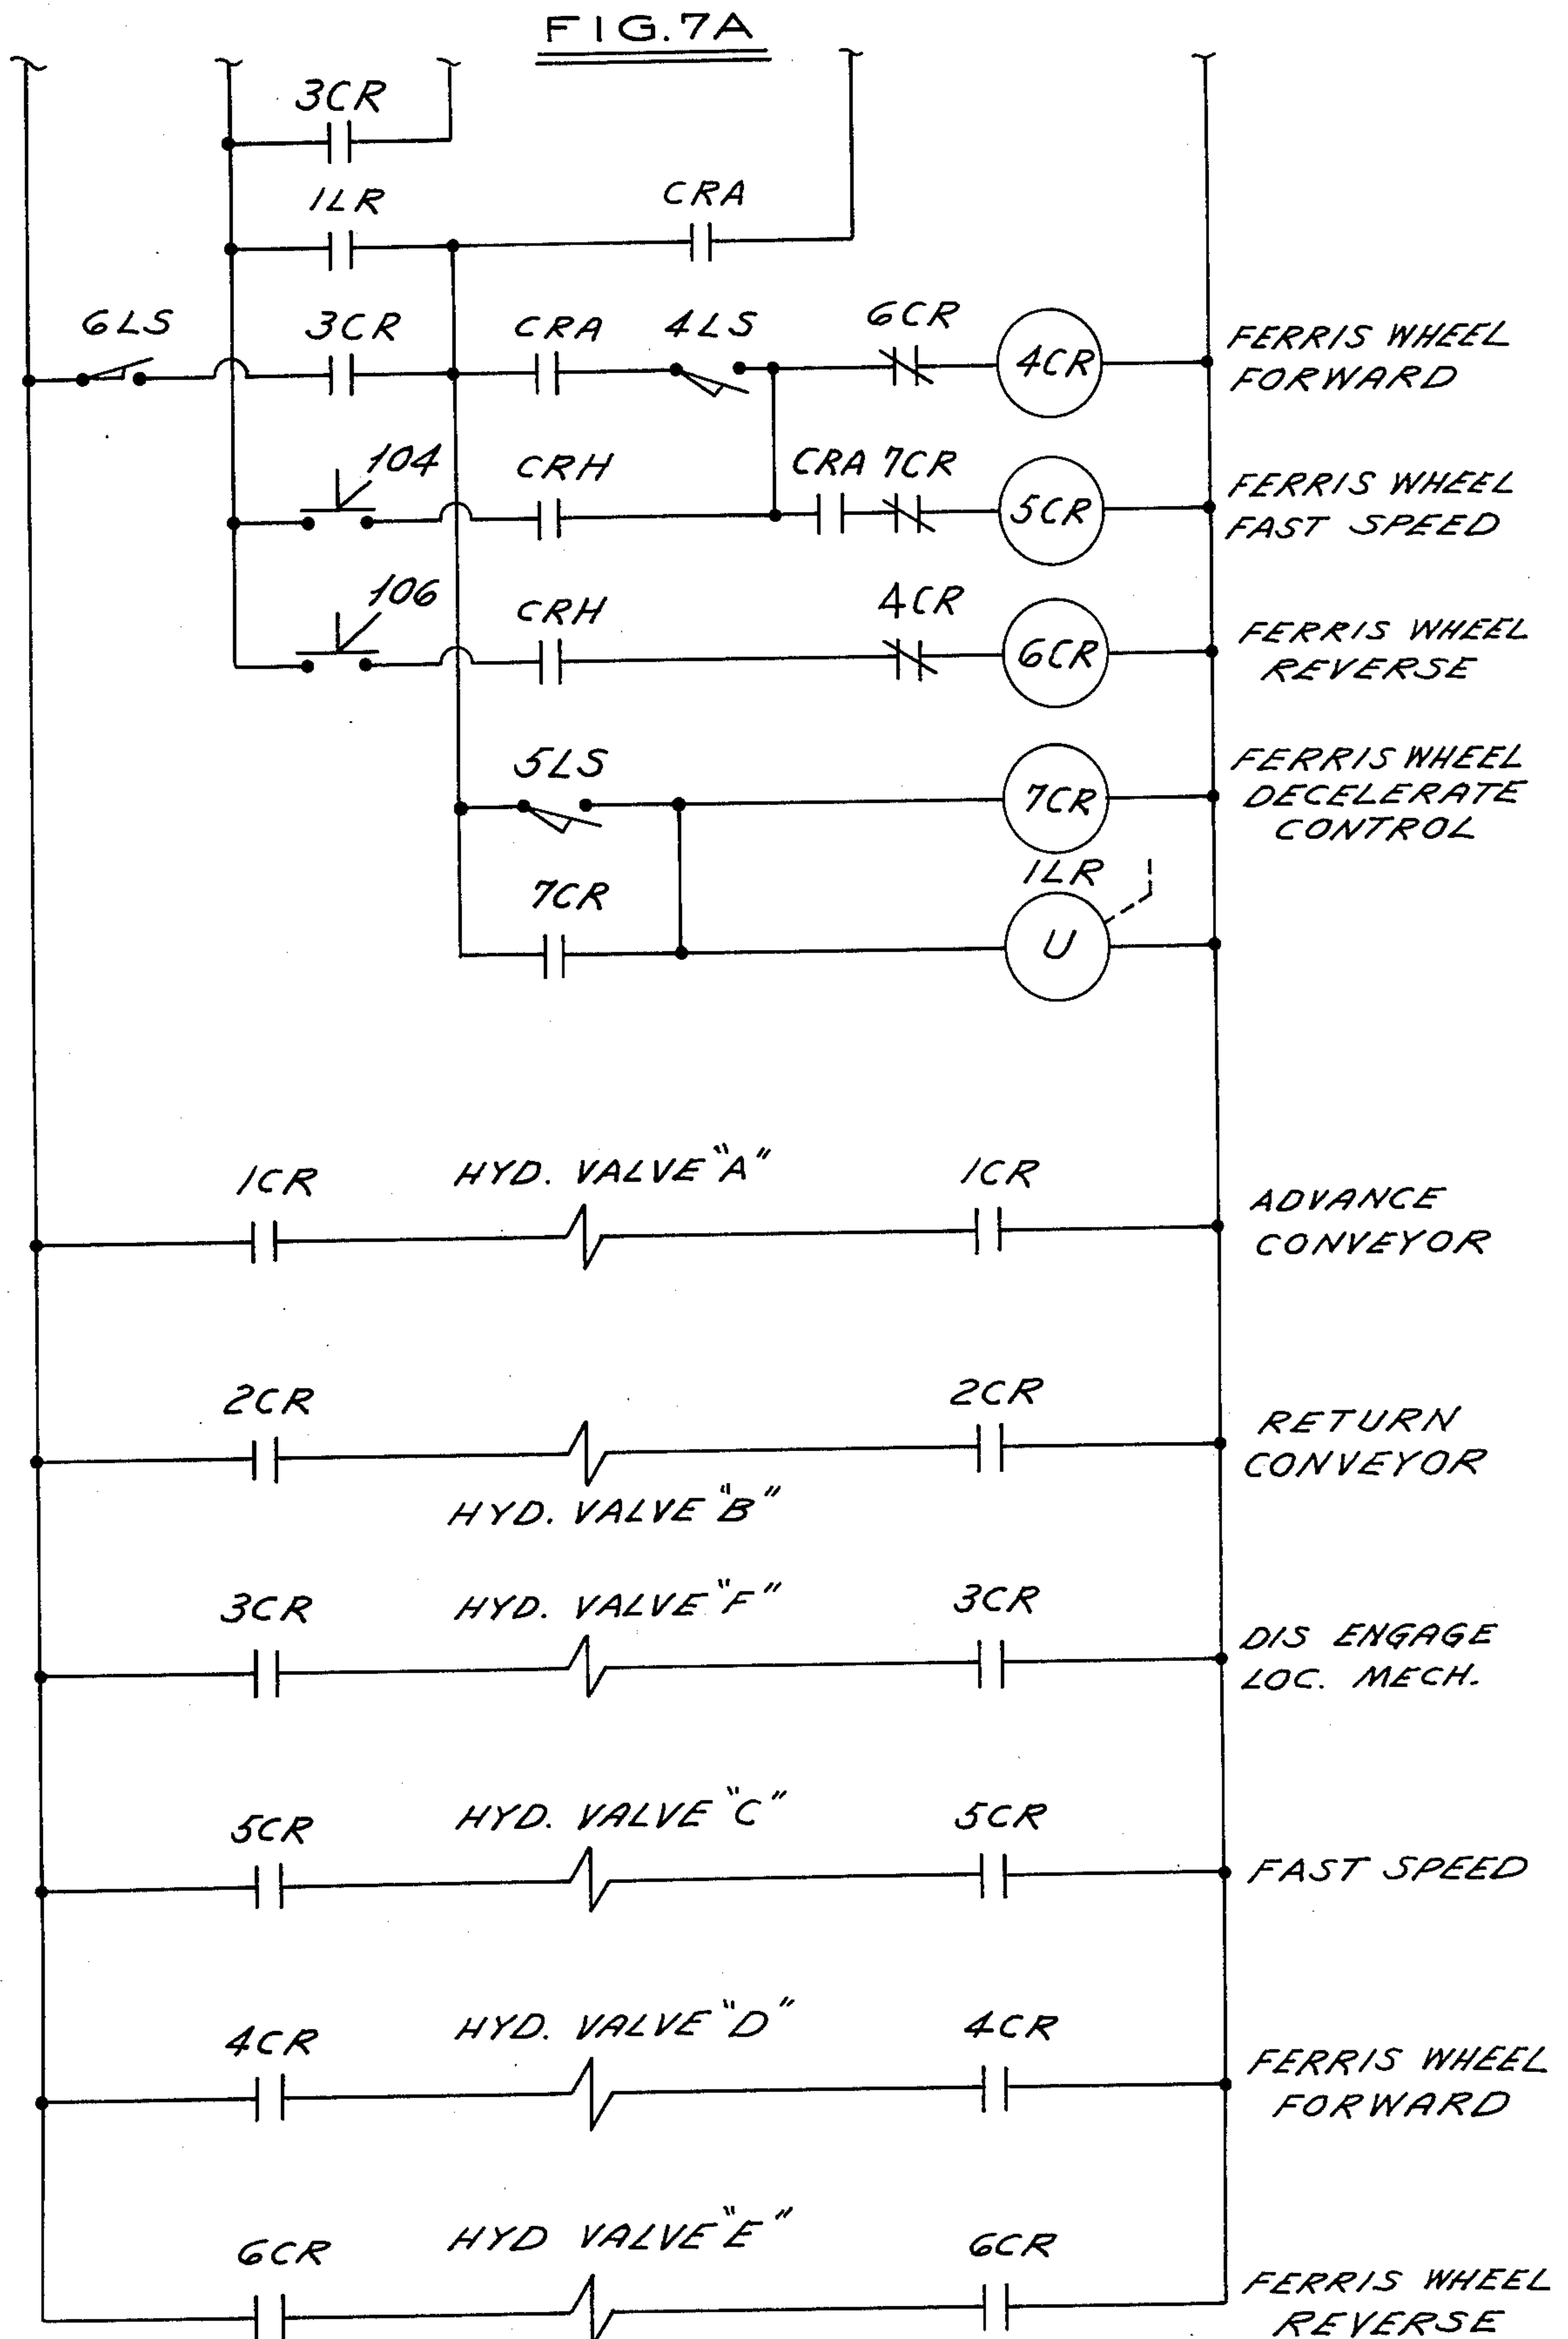 FIG.7A
3CR
1LR
CRA
6LS
3CR
CRA
4LS
6CR
4CR
FERRIS WHEEL
FORWARD
104
CRH
CRA
7CR
5CR
FERRIS WHEEL
FAST SPEED
106
CRH
4CR
6CR
FERRIS WHEEL
REVERSE
5LS
7CR
FERRIS WHEEL
DECELERATE
CONTROL
7CR
1LR
U
1CR
HYD. VALVE "A"
1CR
ADVANCE
CONVEYOR
2CR
2CR
RETURN
CONVEYOR
HYD. VALVE "B"
3CR
HYD. VALVE "F"
3CR
DIS ENGAGE
LOC. MECH.
5CR
HYD. VALVE "C"
5CR
FAST SPEED
4CR
HYD. VALVE "D"
4CR
FERRIS WHEEL
FORWARD
6CR
HYD VALVE "E"
6CR
FERRIS WHEEL
REVERSE